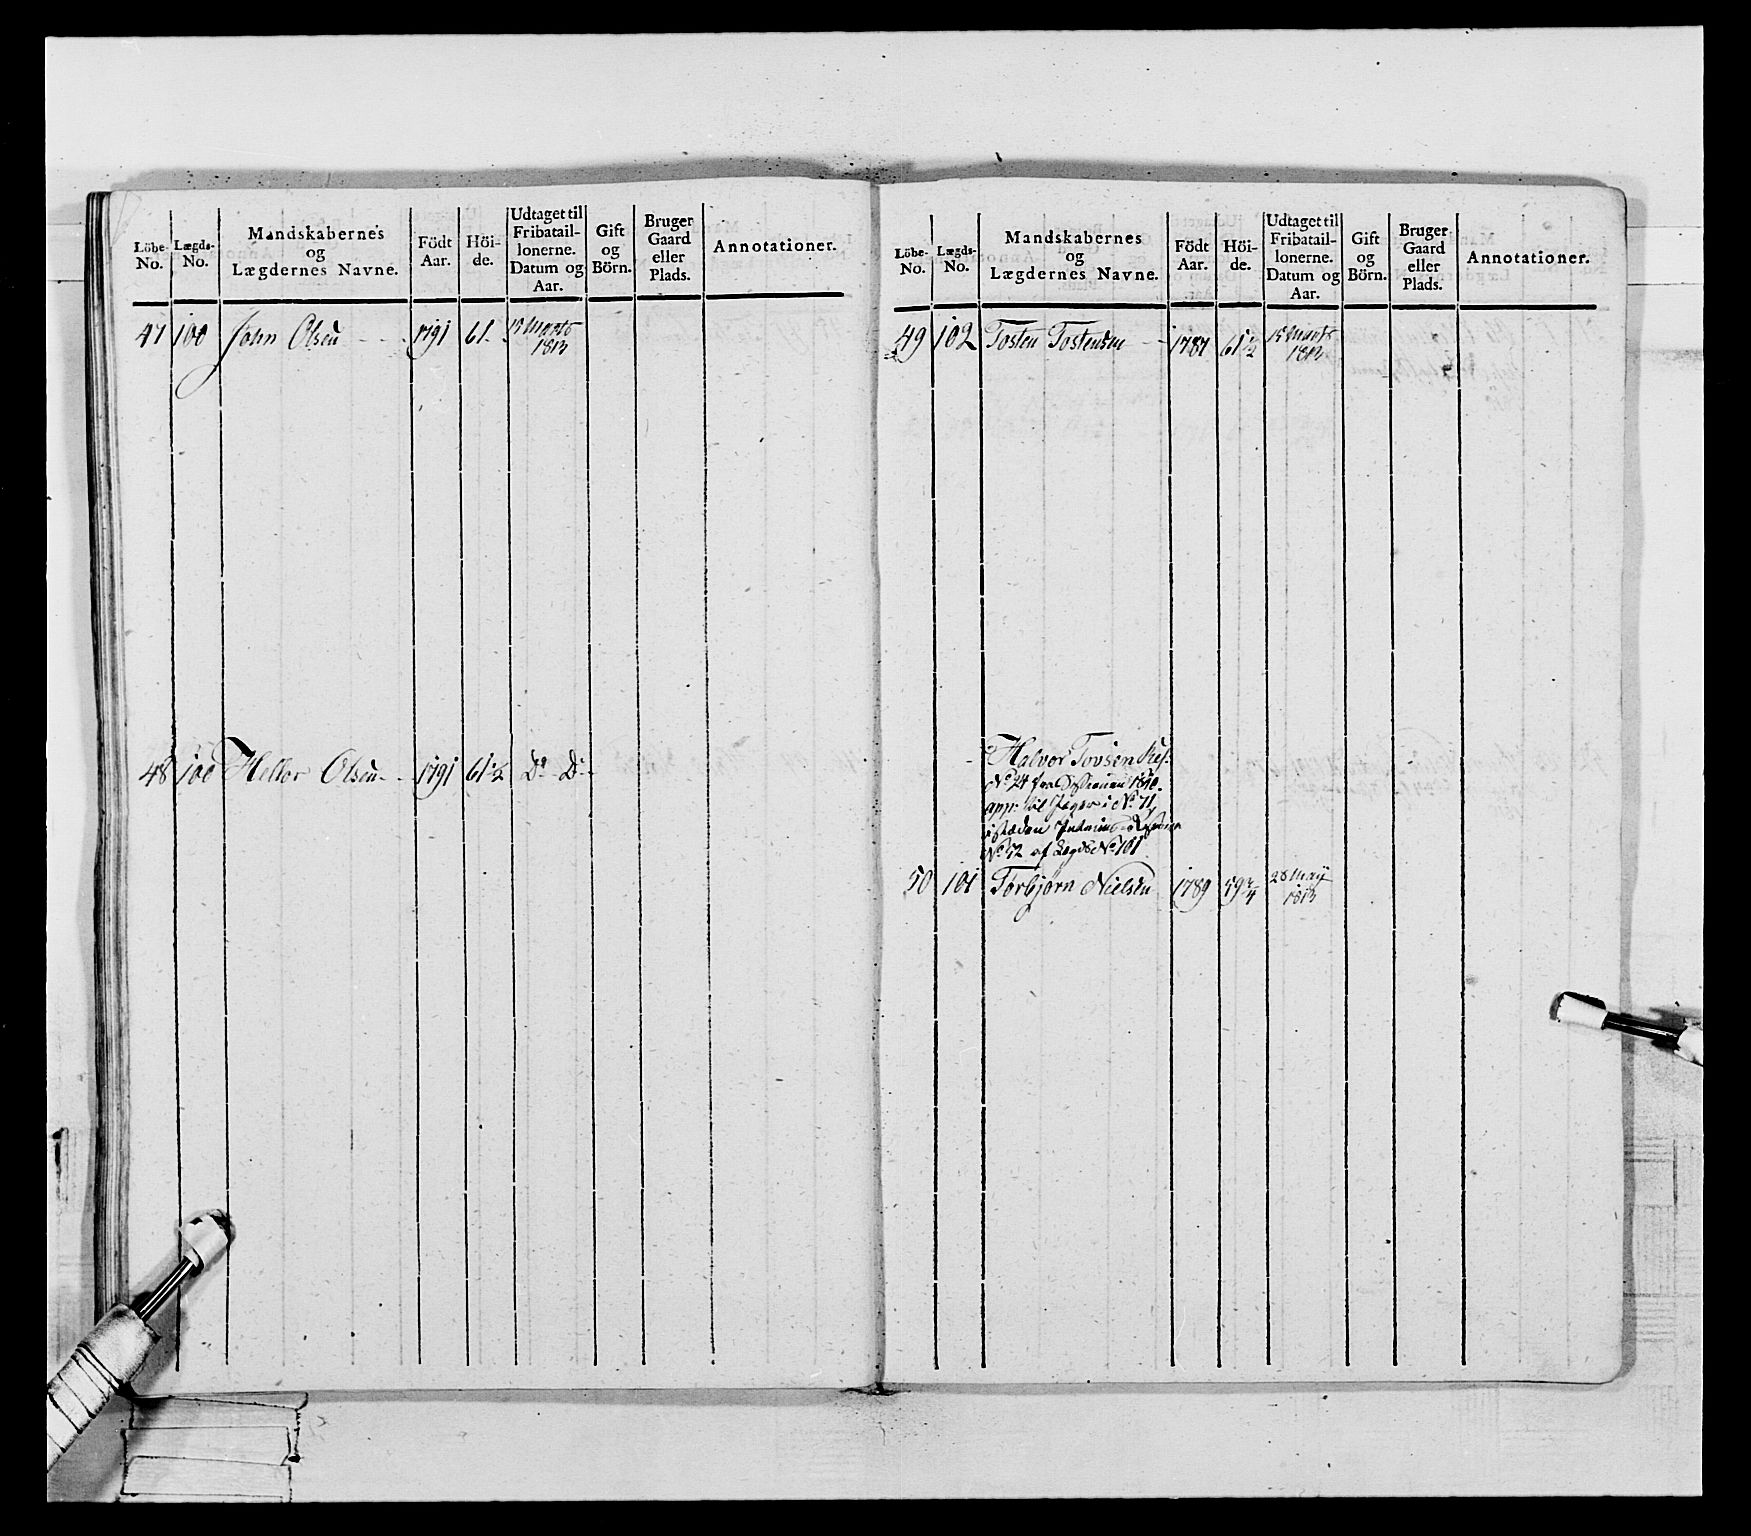 Löbe-
No.
Lægds-
No.
Mandskabernes
og
Lægdernes Navne.
Födt
Aar.
Höi-
de.
Udtaget til
Fribatail-
lonerne.
Datum og
Aar.
Gift
og
Börn.
Bruger
Gaard
eller
Plads.
Annotationer.
47 100 John Olsen - - - 1791 61 - 15 Marts
1813
48 100 Hellor Olsen - - 1791 61 1/2 Do - Do -
Löbe-
No.
Lægds-
No.
Mandskabernes
og
Lægdernes Navne.
Födt
Aar.
Höi-
de.
Udtaget til
Fribatail-
lonerne.
Datum og
Aar.
Gift
og
Börn.
Bruger
Gaard
eller
Plads.
Annotationer.
49 102 Tosten Tostensen - - 1787 61 1/2 15 Marts
1813
Halvor Tovsen
No 24 fra 1810.
app: til Jæger i No 71
istæden
No 52 af Lægds No 101
50 101 Torbjørn Nielsen 1789 59 3/4 28 May
1813